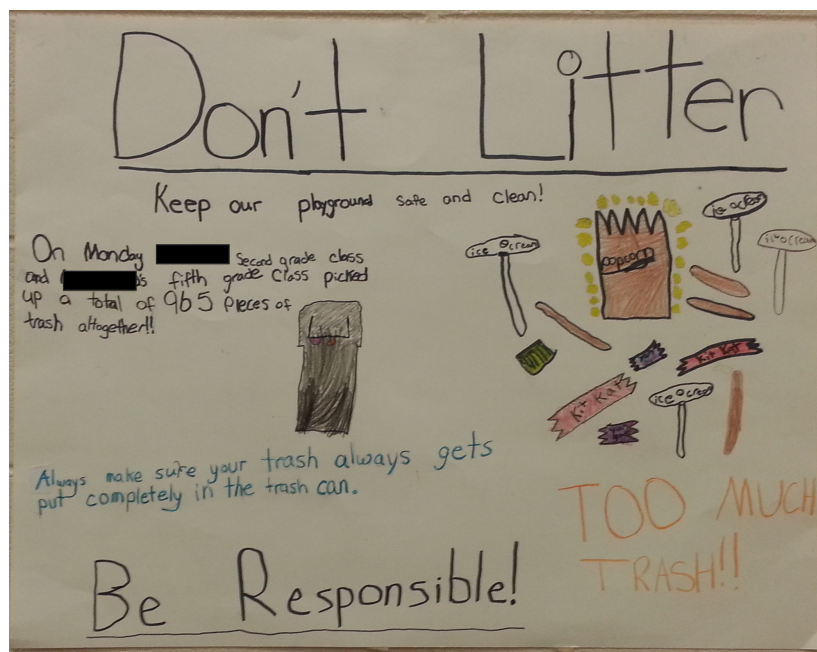 Don't Litter
Keep our playground safe and clean!
On Monday second grade class
and 's fifth grade class picked
up a total of 965 pieces of
trash altogether!!
ice cream
popcorn
ice cream
ice cream
Kit Kat
Kit Kat
ice cream
Always make sure your trash always gets
put completely in the trash can.
TOO MUCH
TRASH!!
Be Responsible!